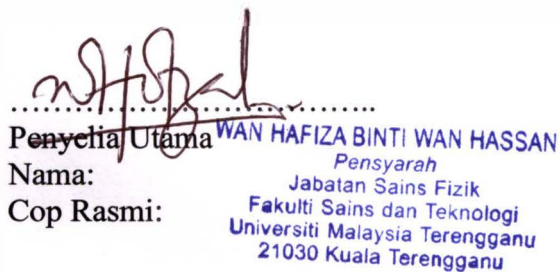 Penyelia Utama
Nama:
Cop Rasmi:
WAN HAFIZA BINTI WAN HASSAN
Pensyarah
Jabatan Sains Fizik
Fakulti Sains dan Teknologi
Universiti Malaysia Terengganu
21030 Kuala Terengganu